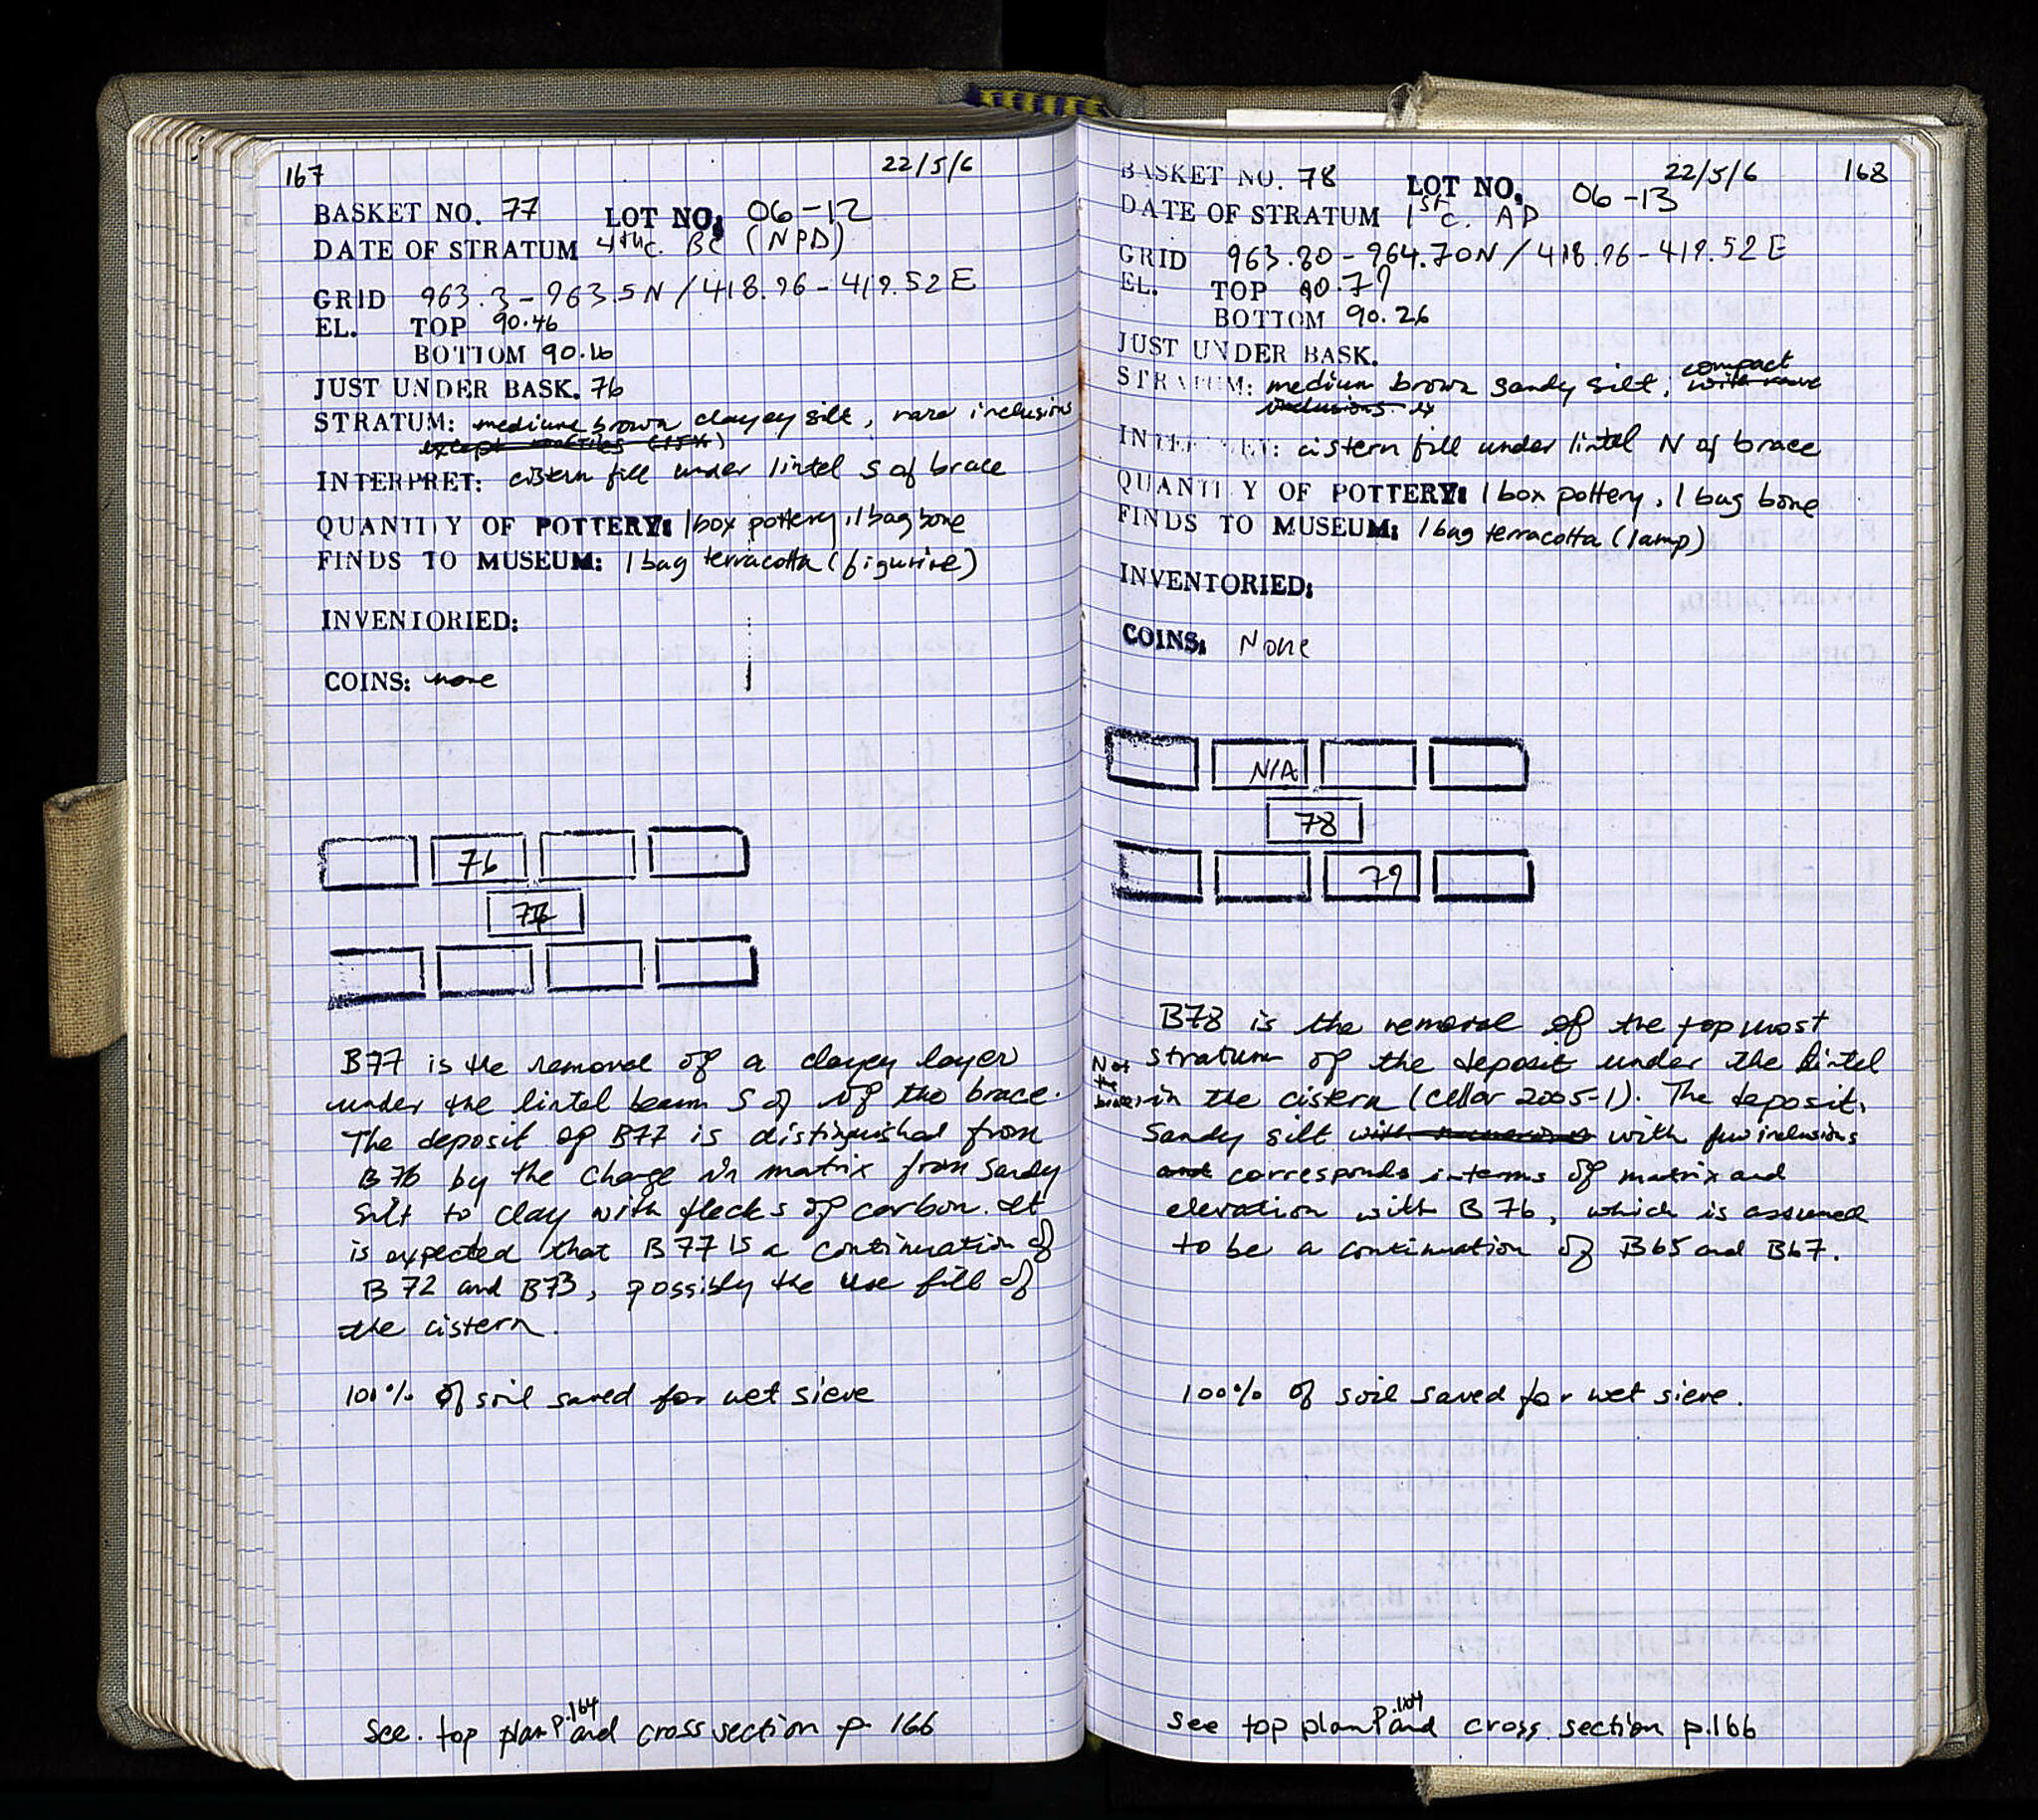 167
22/5/6
BASKET NO. 77 LOT NO. 06-12
DATE OF STRATUM 4th c. BC (NPD)
GRID 963.3-963.5N/418.96-419.52E
EL. TOP 90.46
BOTTOM 90.16
JUST UNDER BASK. 76
STRATUM: medium brown clayey silt, rare inclusions
except rooftiles (15%)
INTERPRET: cistern fill under lintel S of brace
QUANTITY OF POTTERY: 1 box pottery, 1 bag bone
FINDS TO MUSEUM: 1 bag terracotta (figurine)
INVENTORIED:
COINS: none
76
77
B77 is the removal of a clayey layer
under the lintel beam S of of the brace.
The deposit of B77 is distinguished from
B76 by the change in matrix from sandy
silt to clay with flecks of carbon. It
is expected that B77 is a continuation of
B72 and B73, possibly the use fill of
the cistern.
100% of soil saved for wet sieve
See. top plan P.164 and cross section p. 166
22/5/6
168
BASKET NO. 78 LOT NO. 06-13
DATE OF STRATUM 1st c. AD
GRID 963.80-964.70N/418.96-419.52E
EL. TOP 90.79
BOTTOM 90.26
JUST UNDER BASK.
STRATUM: medium brown sandy silt, with rare compact
inclusions
INTERPRET: cistern fill under lintel N of brace
QUANTITY OF POTTERY: 1 box pottery, 1 bag bone
FINDS TO MUSEUM: 1 bag terracotta (lamp)
INVENTORIED:
COINS: None
N/A
78
79
B78 is the removal of the topmost
stratum of the deposit under the lintel
N of the brace in the cistern (cellar 2005-1). The deposit,
sandy silt with numerous with few inclusions
and corresponds in terms of matrix and
elevation with B76, which is assumed
to be a continuation of B65 and B67.
100% of soil saved for wet sieve.
see top plan P.164 and cross. section p.166